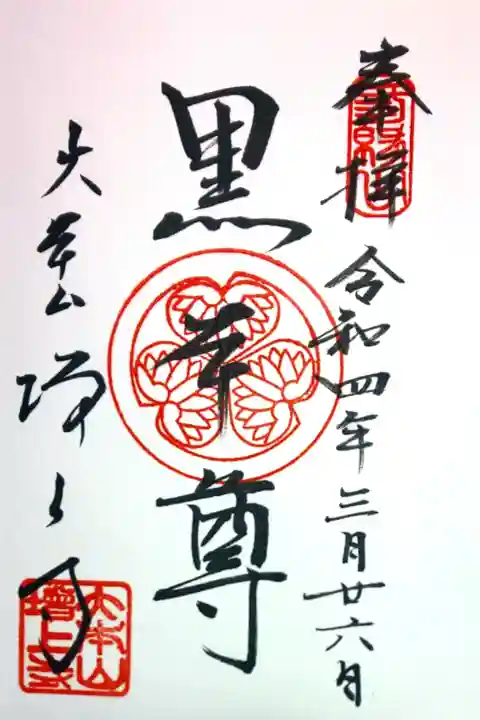 奉拝 令和四年三月廿六日
黒本尊
大本山 増上寺
大本山
増上寺